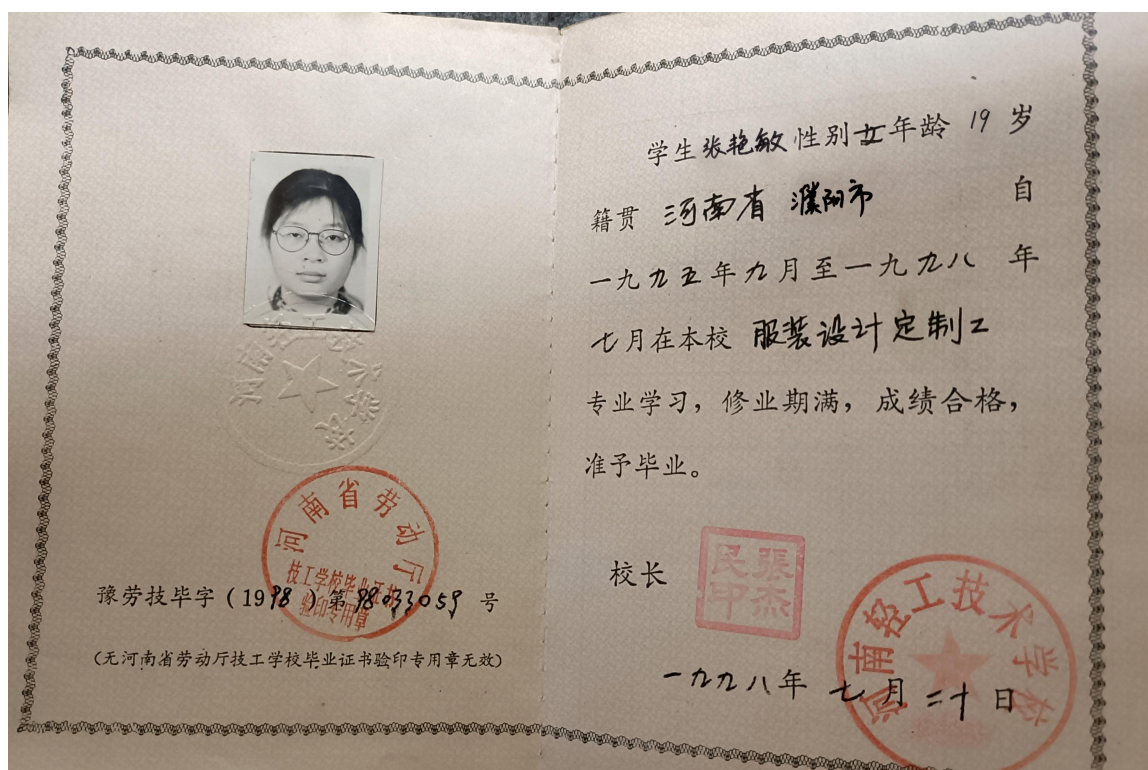 河南省劳动厅
技工学校毕业证书
验印专用章
豫劳技毕字（1998）第98033059号
（无河南省劳动厅技工学校毕业证书验印专用章无效）
学生张艳敏性别女年龄 19 岁
籍贯 河南省 濮阳市 自
一九九五年九月至一九九八年
七月在本校 服装设计定制工
专业学习，修业期满，成绩合格，
准予毕业。
校长
张杰民印
河南轻工技术学校
一九九八年 七月二十日